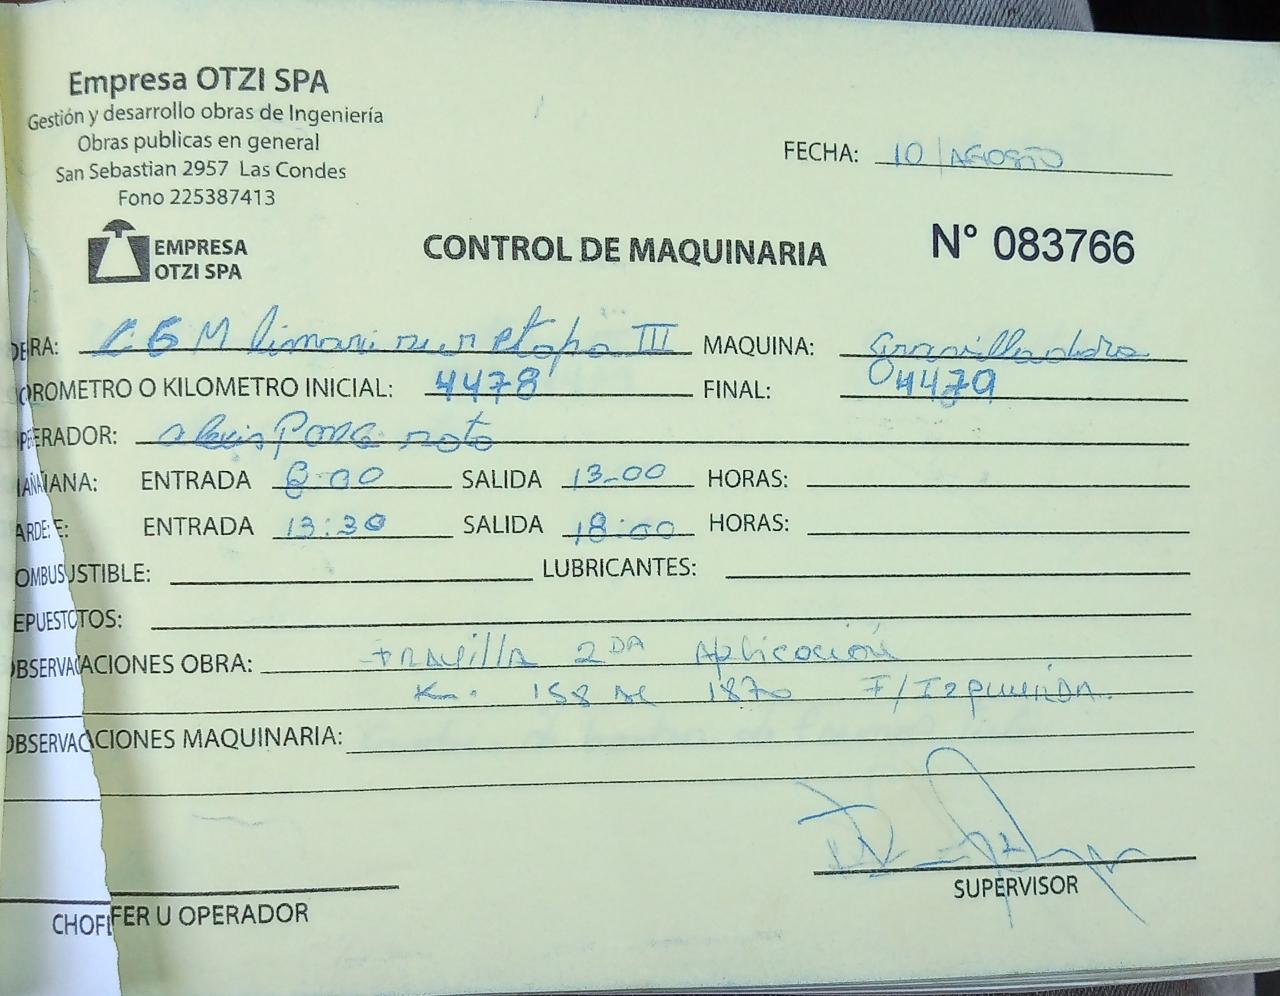 Empresa OTZI SPA
Gestión y desarrollo obras de Ingeniería
Obras publicas en general
San Sebastian 2957 Las Condes
Fono 225387413
FECHA: 10 / AGOSTO
EMPRESA
OTZI SPA
CONTROL DE MAQUINARIA
N° 083766
OBRA: C B M limari sur etapa III MAQUINA: Gravilladora
OROMETRO O KILOMETRO INICIAL: 4478 FINAL: 4479
OPERADOR: alexis
MAÑANA: ENTRADA 8:00 SALIDA 13-00 HORAS:
TARDE: ENTRADA 13:30 SALIDA 18:00 HORAS:
COMBUSTIBLE: LUBRICANTES:
REPUESTOS:
OBSERVACIONES OBRA: 2DA Aplicación
158 AL 1870 F/Izquierda.
OBSERVACIONES MAQUINARIA:
SUPERVISOR
CHOFER U OPERADOR